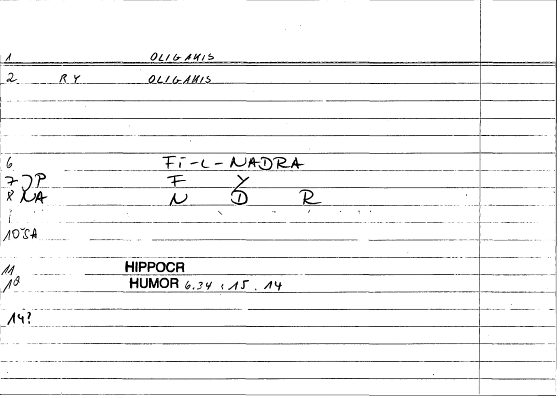 1 OLIGAKIS
2. RY OLIGAKIS
6 Fi-L-NADRA
7 P F Y
8 NA N D R
10 SA
11 HIPPOCR
18 HUMOR 6.34 : 15 . 14
14?